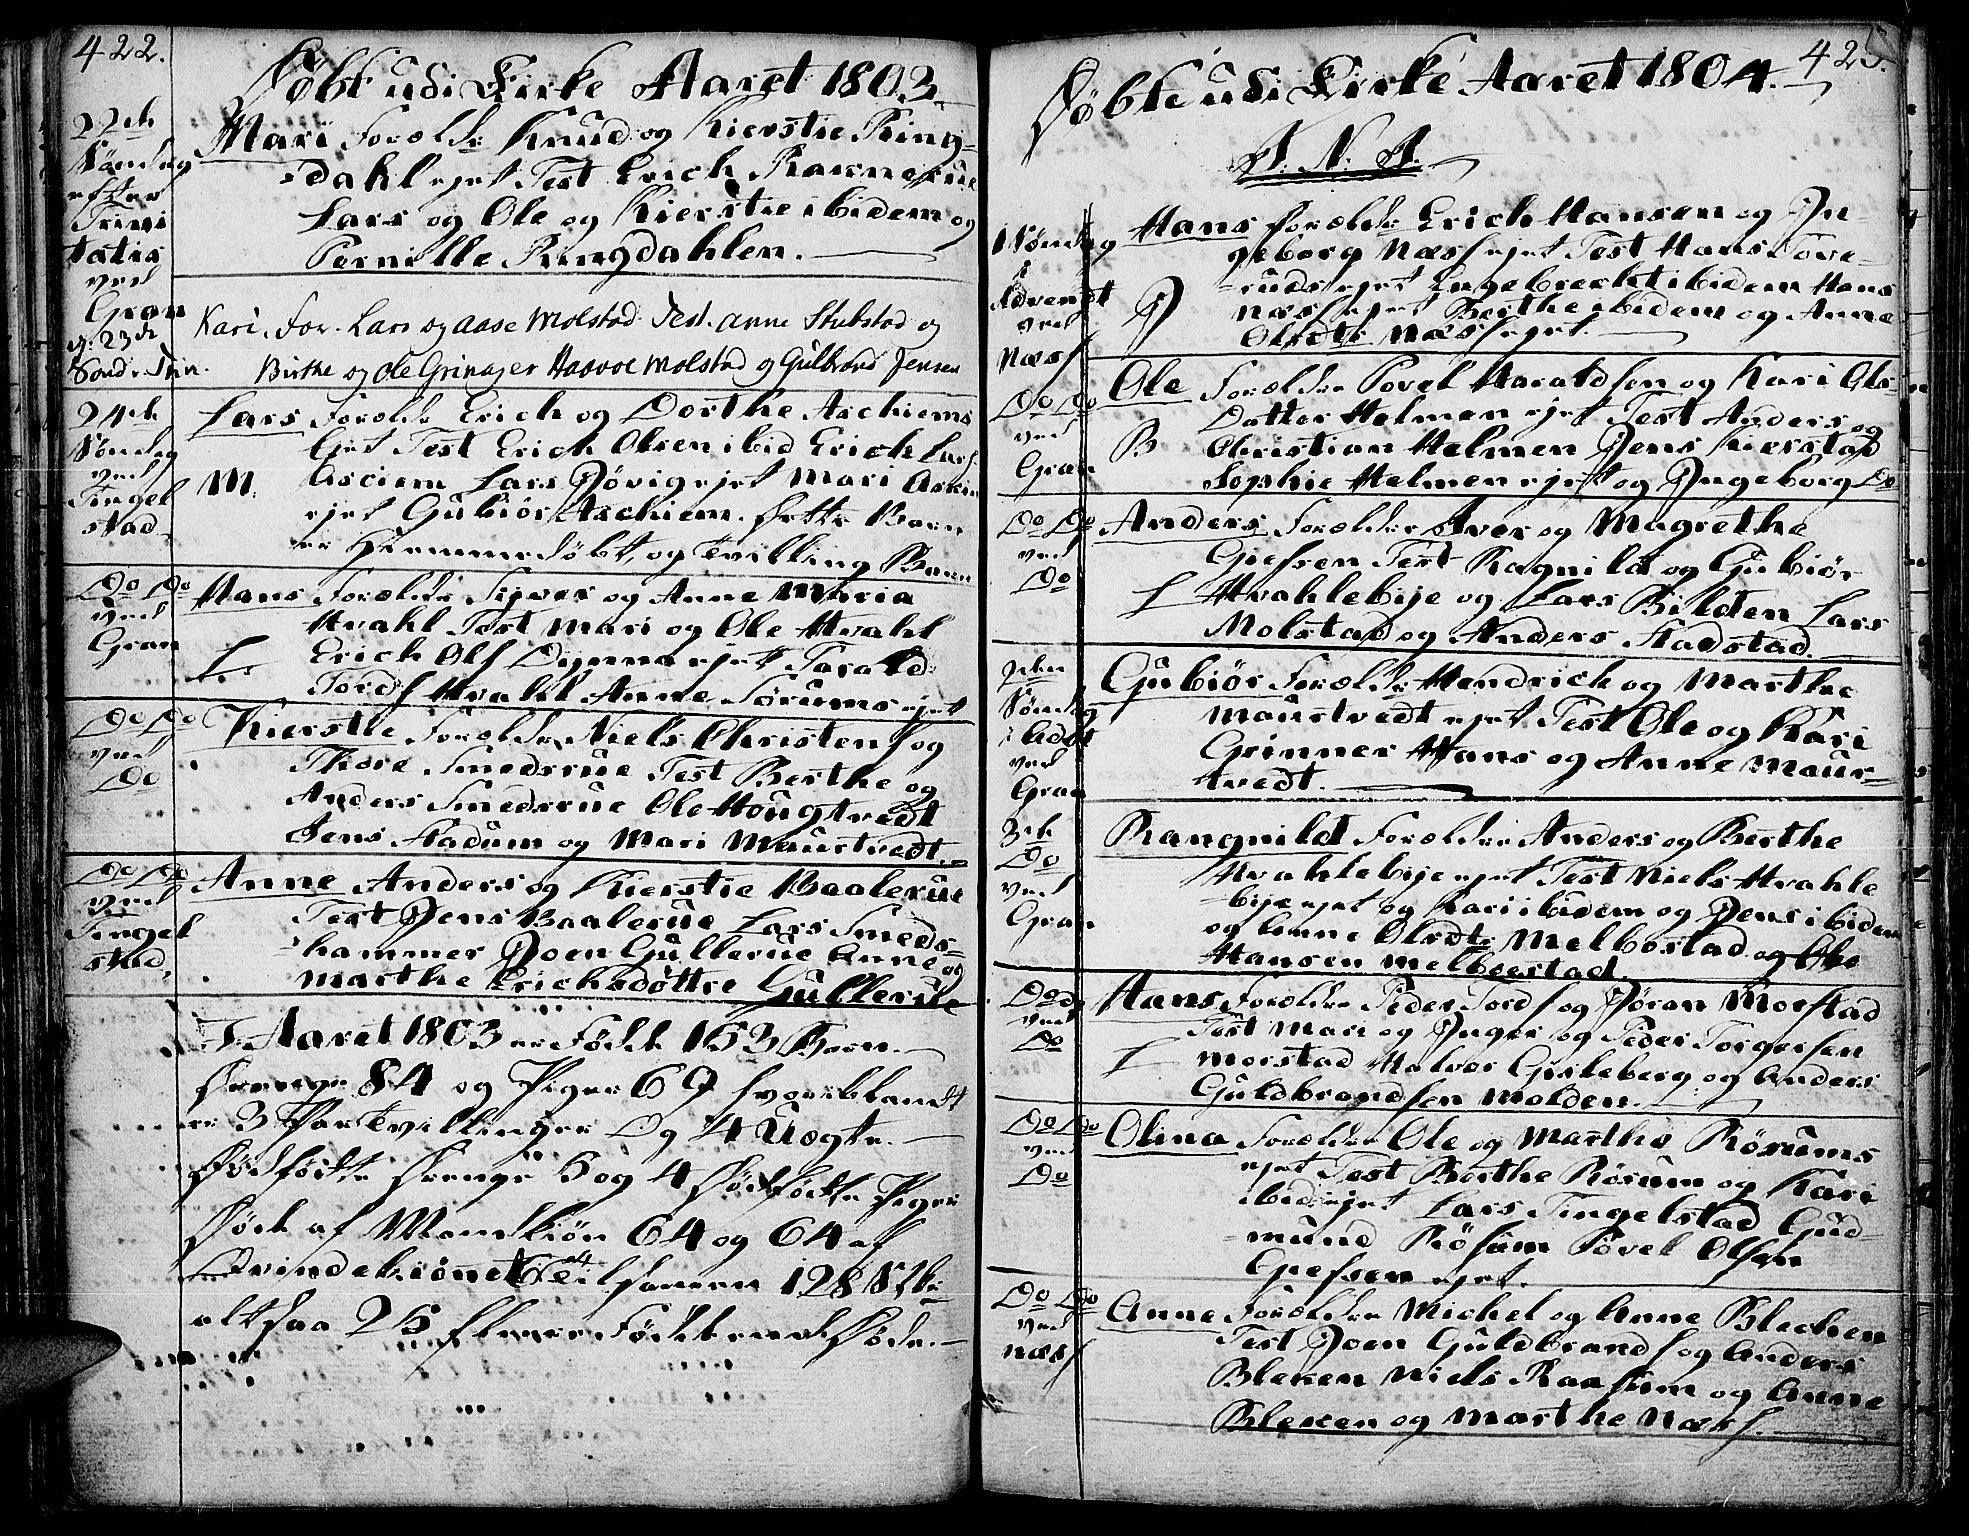 422.
Döbt udi Kirke Aaret 1803.
22de
Söndag
efter
Trini
tatis
ved
Gran
Mari Forældre Knud og Kierstie Ring-
dahl ejet Test Erich Ravnerue
Lars og Ole og Kierstie ibidem og
Pernille Ringdahlen.
g. 23de
Sond. Trin.
Kari, For. Lars og Aase Molstad Test. Anne Stubstad og
Birthe og Ole Grinager Haavor Molstad og Gulbrand Jensen
24de
Söndag
ved
Tingel
stad
Lars Forældre Erich og Dorthe Aschiems
Ejet Test Erich Olsen ibid Erich Lars
M. Asciem Lars Jövig ejet Mari Askim
ejet Gubiör Aschiem. Dette Barn
er Hiemmedöbt, og Tvilling Barn
Do Do
ved
Gran
Hans Forældre Syver og Anne Maria
Hvahl Test Mari og Ole Hvahl
L. Erich Ols Dynna ejet Tarald
Tords Hvahl Anne Sörums ejet
Do Do
ved
Do
Kierstie Forældre Niels Christens og
Thore Smedsrue Test Berthe og
Anders Smedsrue Ole Hougtvedt
Jens Stadum og Mari Maurtvedt.
Do Do
ved
Tingel
stad,
Anne Anders og Kierstie Baalerue
Test Jens Baalerue Lars Smeds-
hammer Joen Gullerue Anne og
Marthe Erichsdöttre Gullerue
I Aaret 1803 er Födde 153 Börn.
Drenge 84 og Piger 69 hvoriblandt
er 3 Par Tvillinger Og 4 Uægte.
Dödfödte Drenge 5 og 4 Dödfödte Piger
Döde af Mandkiön 64 og 64 af
Qvindekiönnet Tilsamen 128 Stk:
altsaa 25 flere Födde end Döde.
425.
Döbte udi Kirke Aaret 1804.
I. N. J.
1 Söndag
i
Advendt
ved
Næss
Hans Forældre Erich Hansen og In-
geborg Næss ejet Test Hans Tove-
ruds ejet Engebrecht ibidem Hans
Næss ejet Berthe ibidem og Anne
Olsdtr Næss ejet.
Do Do
ved
Gran
Ole Forældre Povel Haraldsen og Kari Ols-
Datter Helmen ejet Test Anders og
B Christian Helmen Jens Kierstad
Sophie Helmen ejet og Ingeborg Do
Do Do
ved
Do
Anders Forældre Iver og Magrethe
Gjefsen Test Ragnild og Gubiör
L Hvahlebye og Lars Bilden Lars
Molstad og Anders Stadstad.
2den
Söndag
i Advt
ved
Gran
Gubiör Forældre Hendrich og Marthe
Maurtvedt ejet Test Ole og Kari
Grinner Hans og Anne Maur-
tvedt.
3de
Do
ved
Gran
Rangnild Forældre Anders og Berthe
Hvahlebye ejet Test Niels Hvahle
bye ejet og Kari ibidem og Jens ibidem
og Anne Olsdtr Melbostad og Ole
Hansen Melboestad.
Do do
ved
Do
Hans Forældre Peder Tords og Jöran Morstad
Test Mari og Inger og Peder Torgersen
L Morstad Halvor Gisleberg og Anders
Guldbrandsen Molden.
Do Do
ved
Do
Olina Forældre Ole og Marthe Rösums
ejet Test Berthe Rösum og Kari
ibid ejet Lars Tingelstad Gud-
mund Rösum Povel Olsen
Gjefsen ejet.
Do Do
ved
Næss
Anne Forældre Michel og Anne Blechen
Test Joen Guldbrands og Anders
Bleken Niels Raasum og Anne
Bleken og Marthe Næss.